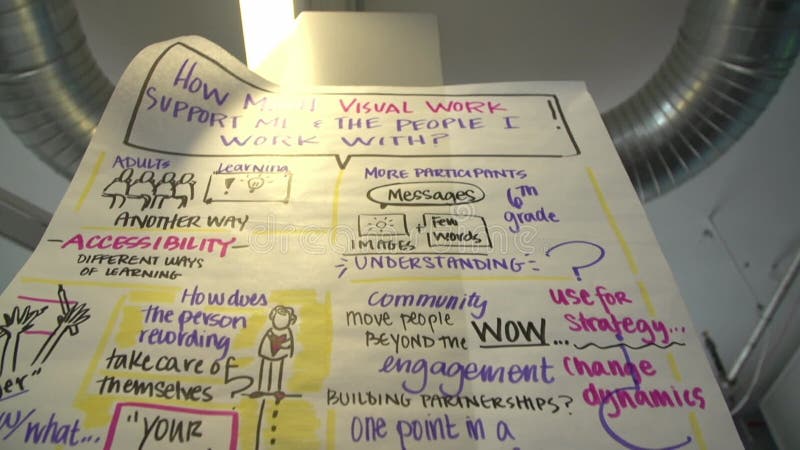 HOW VISUAL WORK
SUPPORT ME & THE PEOPLE I
WORK WITH?
ADULTS
Learning
!
ANOTHER WAY
ACCESSIBILITY
DIFFERENT WAYS
OF LEARNING
MORE PARTICIPANTS
Messages
6th
grade
IMAGES + Few
Words
UNDERSTANDING
?
How does
the person
recording
take care of
themselves?
Community
move people
BEYOND THE WOW...
engagement
BUILDING PARTNERSHIPS?
one point in a
use for
strategy...
change
dynamics
what...
"YOUR
dreamstime